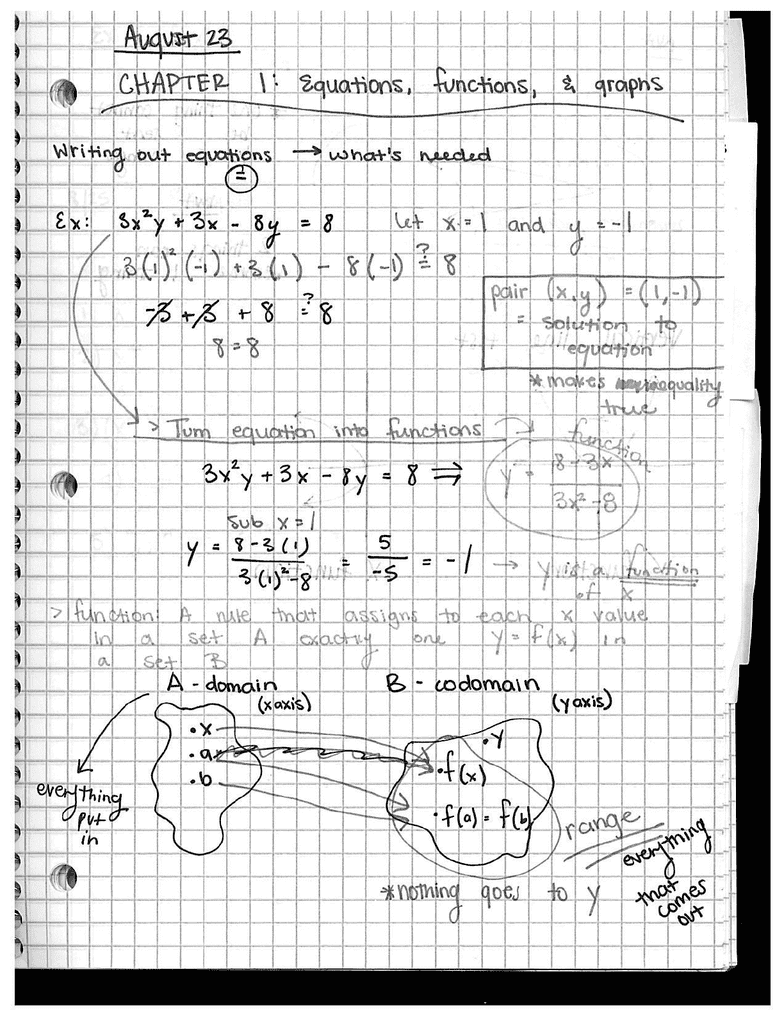 August 23
CHAPTER 1: Equations, functions, & graphs
Writing out equations → what's needed
=
Ex: 3x²y + 3x - 8y = 8 let x = 1 and y = -1
3(1)²(-1) + 3(1) - 8(-1) ≟ 8
-3 + 3 + 8 ≟ 8
8 = 8
pair (x,y) = (1,-1)
= solution to
equation
*makes equality
true
> Turn equation into functions
function
3x²y + 3x - 8y = 8 ⇒ y = (8-3x)/(3x²-8)
sub x = 1
y = (8-3(1))/(3(1)²-8) = 5/-5 = -1 → y is a function
of x
> function: A rule that assigns to each x value
in a set A exactly one y = f(x) in
a set B
A - domain B - codomain
(x axis) (y axis)
• x
• a
• b
• y
• f(x)
• f(a) = f(b)
everything
put
in
range
everything
that
comes
out
*nothing goes to y